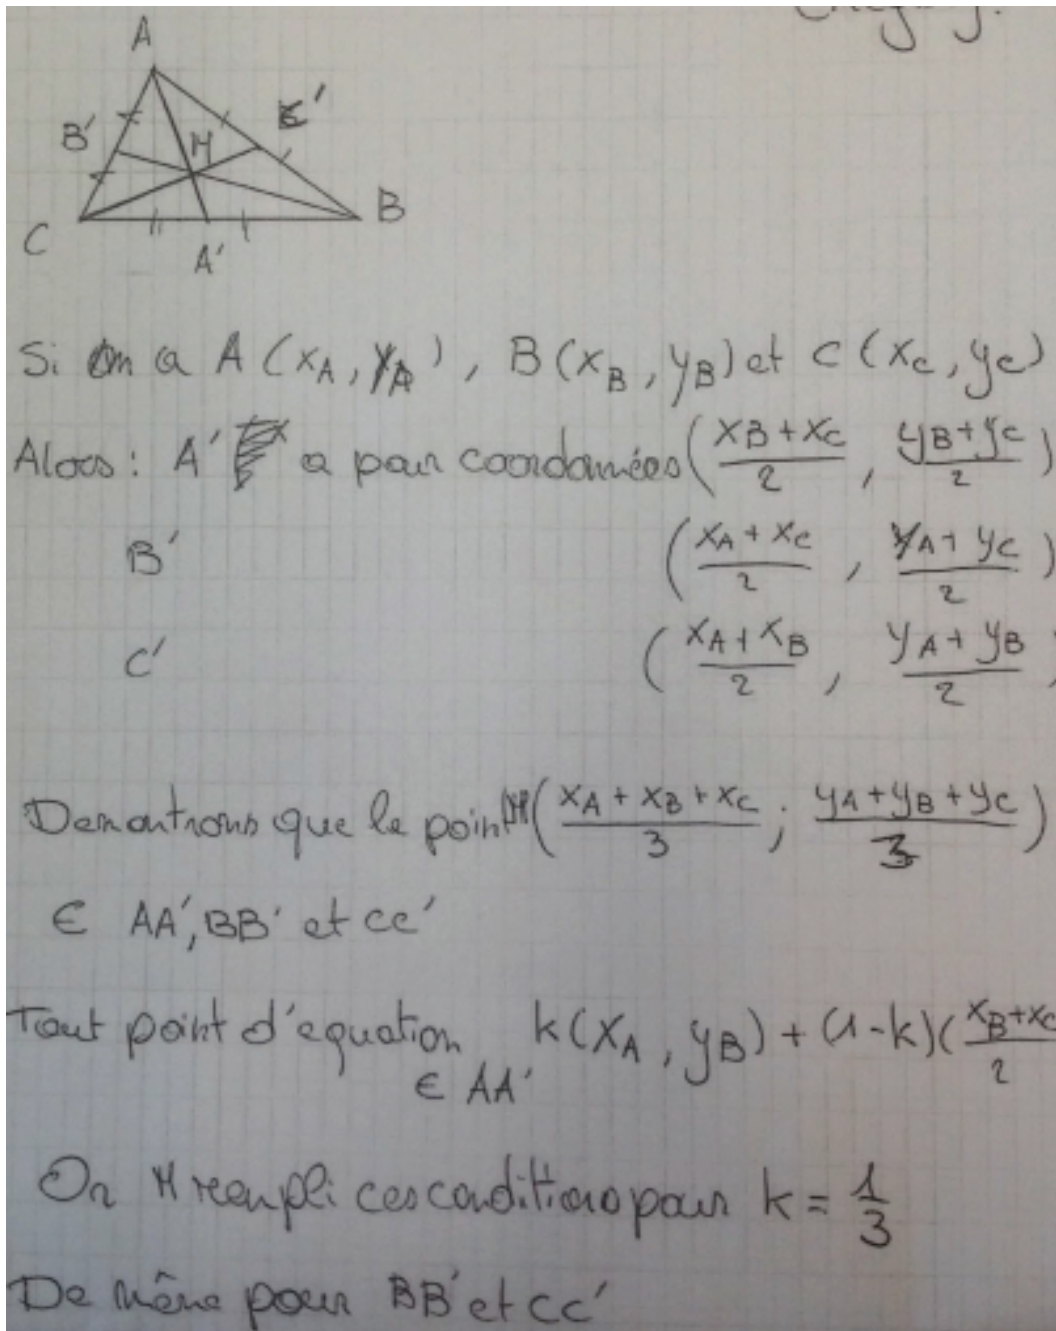 A
B' M C'
C B
A'
Si on a A (xA, yA), B (xB, yB) et C (xC, yC)
Alors : A' a pour coordonnées (xB + xC / 2, yB + yC / 2)
B' (xA + xC / 2, yA + yC / 2)
C' (xA + xB / 2, yA + yB / 2)
Demontrons que le point M (xA + xB + xC / 3 ; yA + yB + yC / 3)
∈ AA', BB' et CC'
Tout point d'equation k(xA, yB) + (1-k)(xB + xC / 2
∈ AA'
Or M rempli ces conditions pour k = 1/3
De même pour BB' et CC'